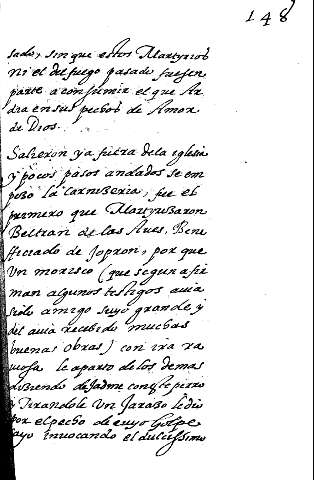 148
sado, sin que estos Martyrios
ni el del fuego pasado fuesen
parte a consumir el que Ar
dia en sus pechos de Amor
de Dios.
Salieron ya fuera dela iglesia
y pocos pasos andados se em
pezo la carniseria, fue el
primero que Martyrizaron
Beltran de las Aves, Bene
ficiado de Jopron, por que
Un morisco (que segun afir
man algunos testigos avia
sido amigo suyo grande y
del avia recebido muchas
buenas obras) con ira ra
viosa le aparto de los demas
disiendo dejadme con este pirro
y tirandole Un Jarazo le dio
por el pecho de cuyo Golpe
cayo invocando el dulcissimo